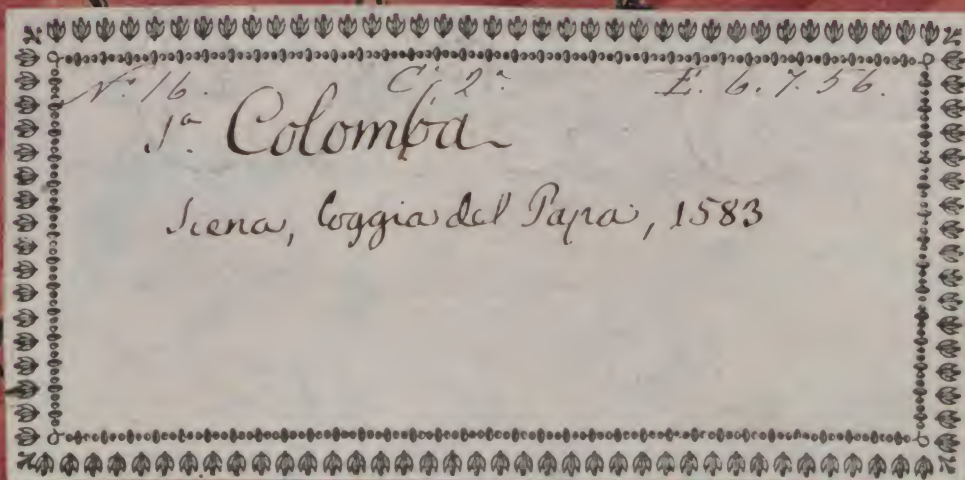 N.º 16. C. 2ª E. 6. 7. 56.
Sª Colomba
Siena, loggia del Papa, 1583